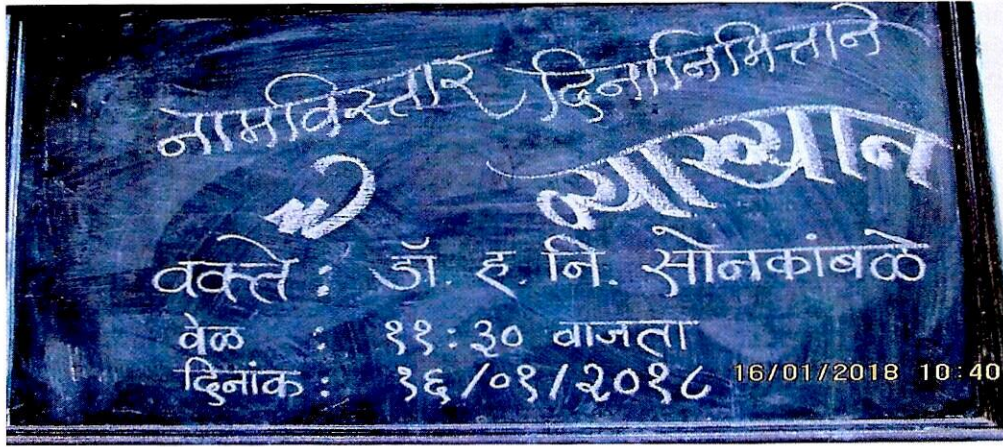 नामविस्तार दिनानिमित्ताने
व्याख्यान
वक्ते : डॉ. ह. नि. सोनकांबळे
वेळ : ११:३० वाजता
दिनांक : १६/०१/२०१८
16/01/2018 10:40